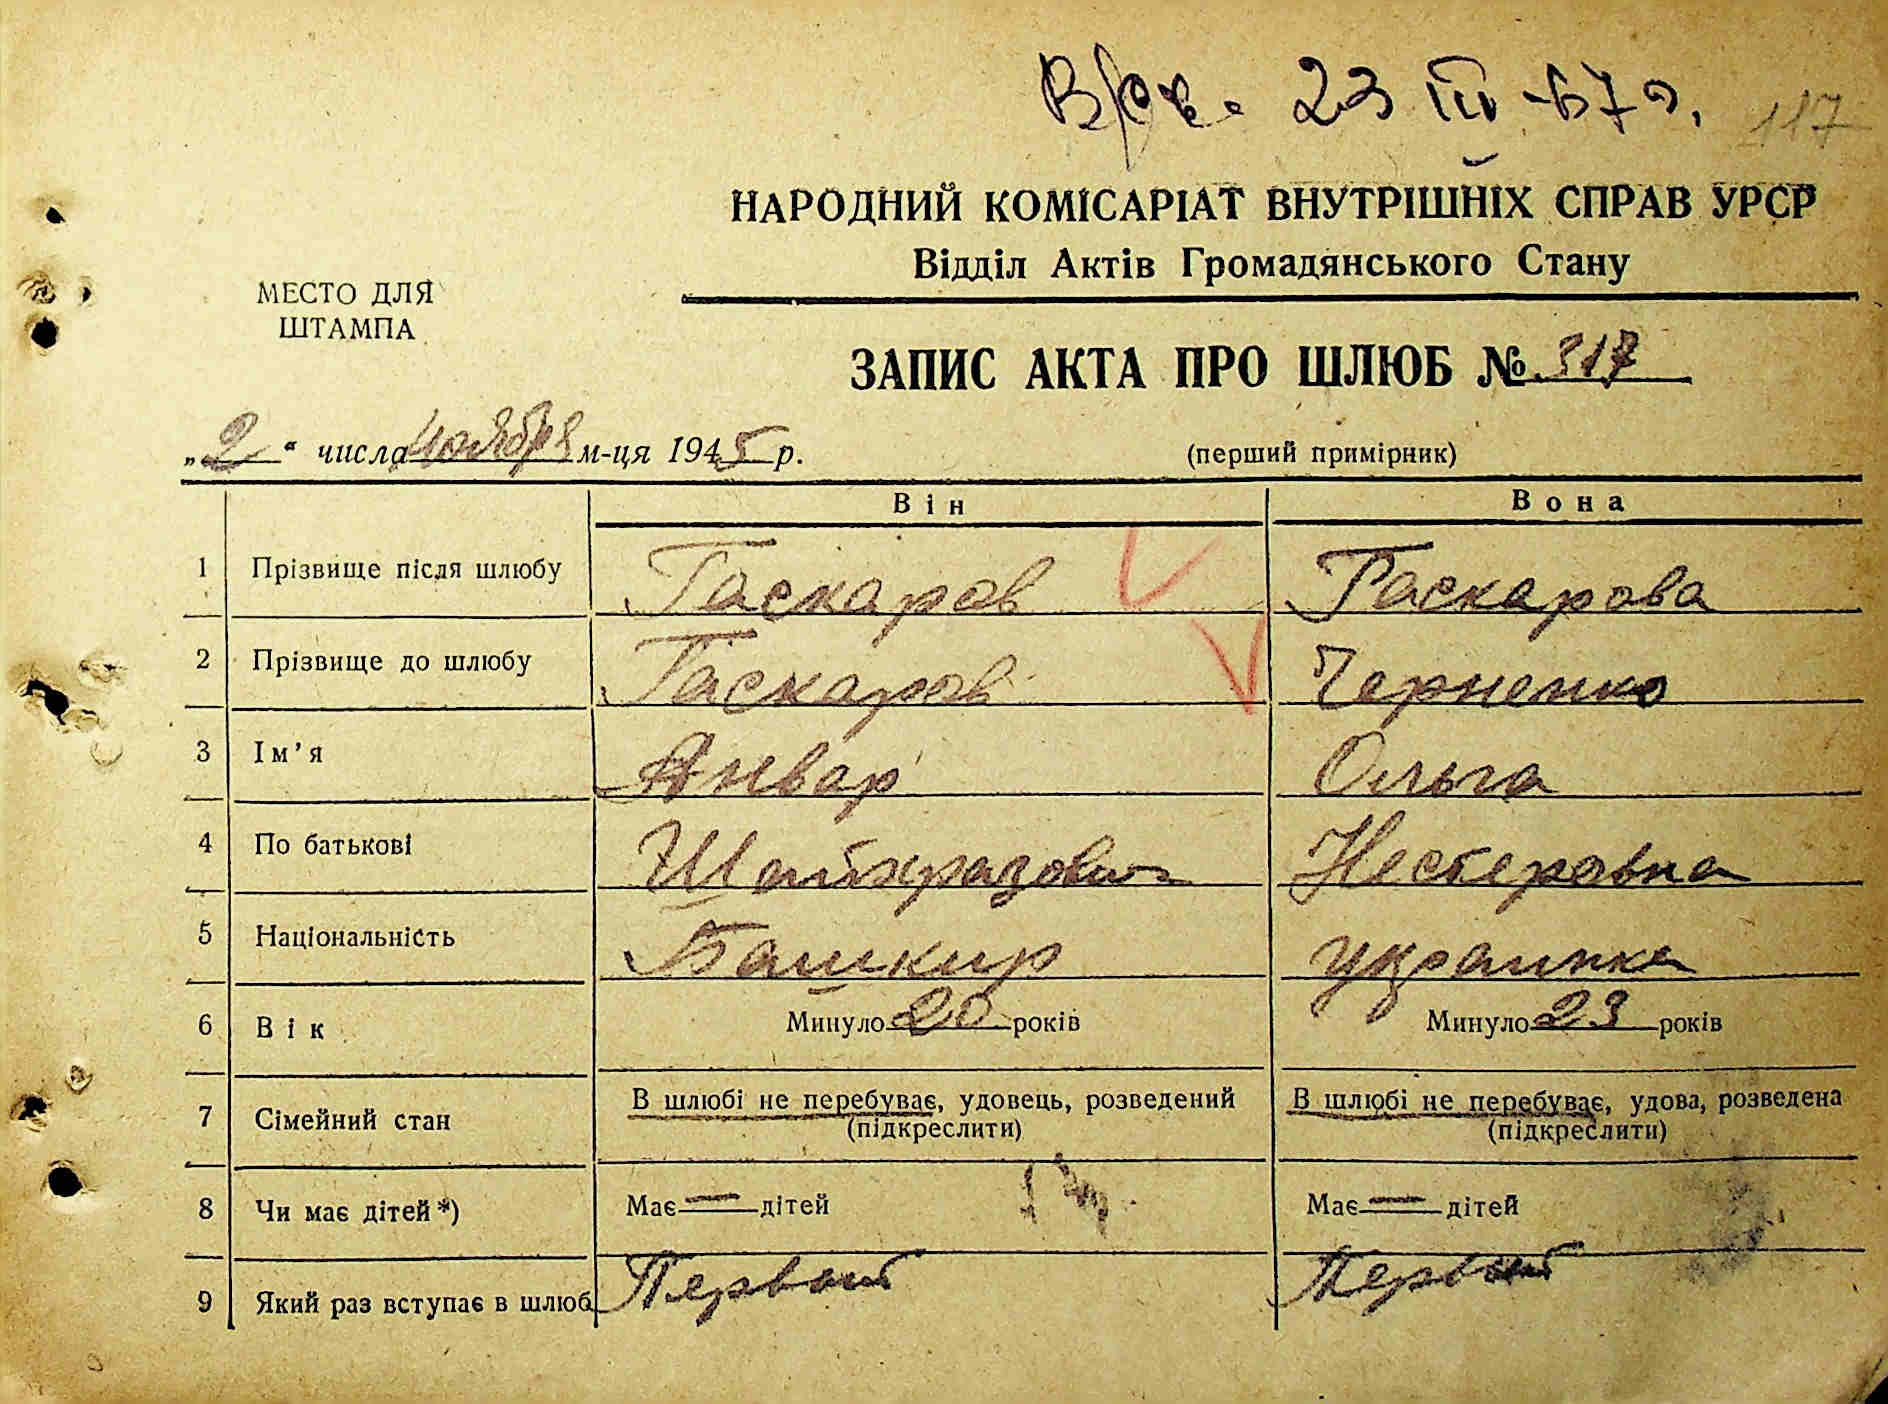 23 III-67 г.
117
НАРОДНИЙ КОМІСАРІАТ ВНУТРІШНІХ СПРАВ УРСР
Відділ Актів Громадянського Стану
МЕСТО ДЛЯ
ШТАМПА
ЗАПИС АКТА ПРО ШЛЮБ № 317
„2“ числа ноября м-ця 1945 р.
(перший примірник)
Він Вона
1 Прізвище після шлюбу Гаскаров Гаскарова
2 Прізвище до шлюбу Гаскаров Черненко
3 Ім’я Анвар Ольга
4 По батькові Нестеровна
5 Національність Башкир украинка
6 Вік Минуло 20 років Минуло 23 років
7 Сімейний стан В шлюбі не перебуває, удовець, розведений В шлюбі не перебуває, удова, розведена
(підкреслити) (підкреслити)
8 Чи має дітей*) Має — дітей Має — дітей
9 Який раз вступає в шлюб Первый Первый